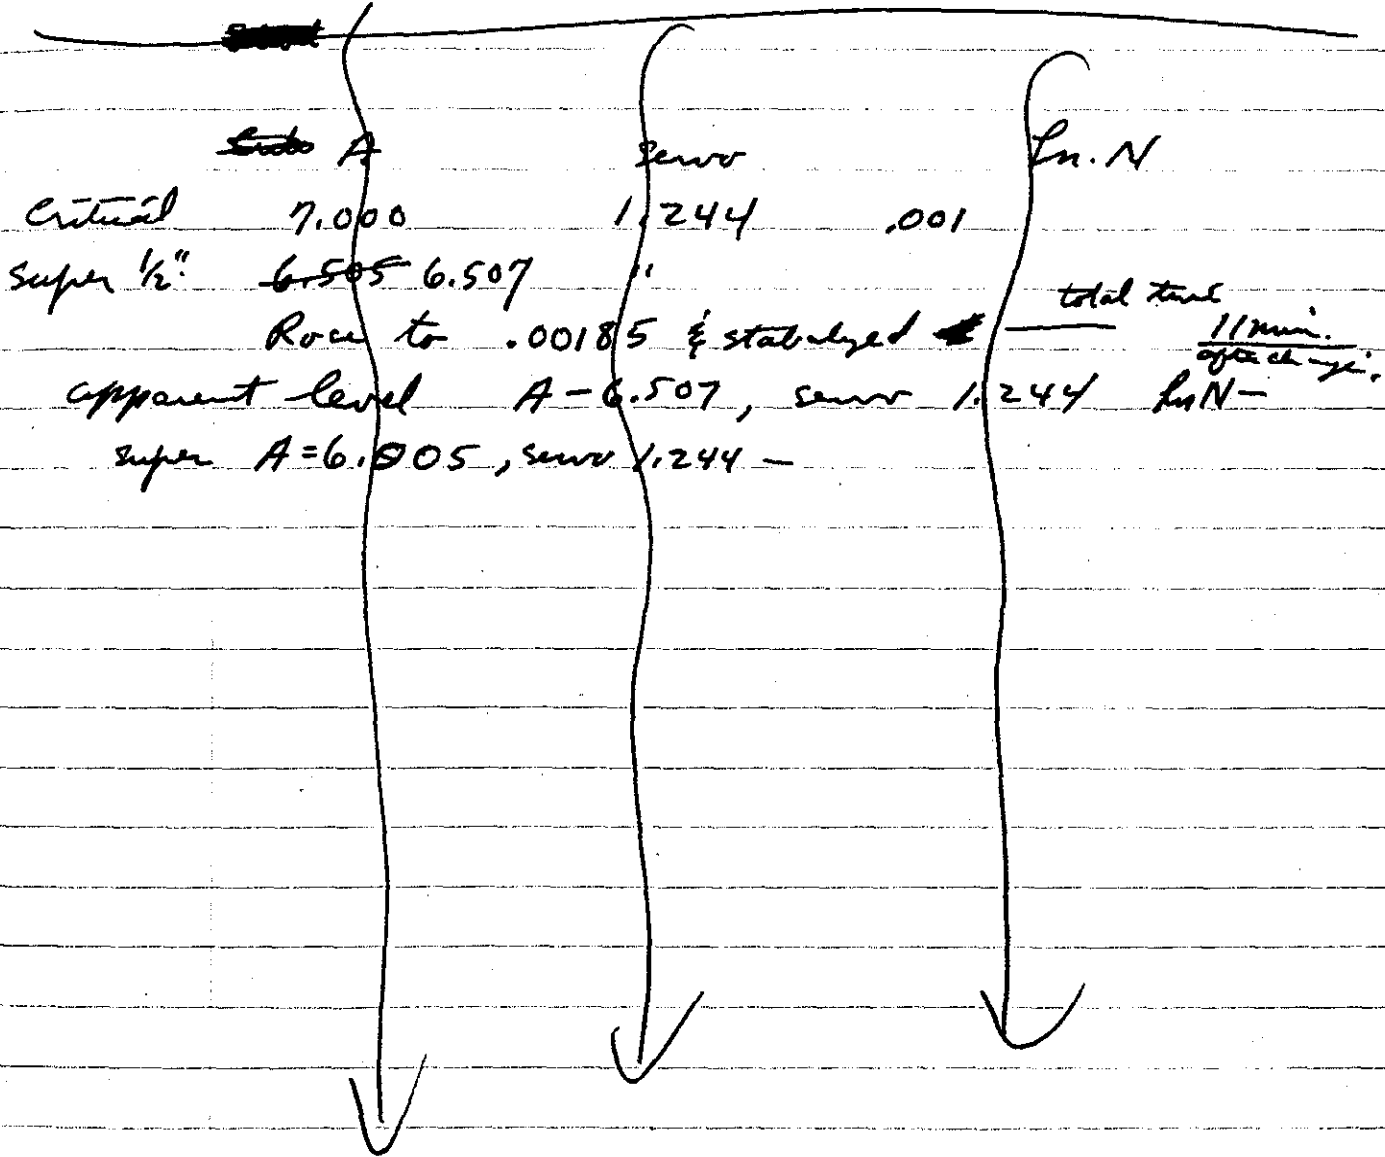 A servo Ln. N
Critical 7.000 1.244 .001
super 1/2": 6.505 6.507 "
total time
Rose to .00185 & stabalyzed — 11 min.
after change.
apparent level A - 6.507, servo 1.244 LnN -
super A = 6.005, servo 1.244 -